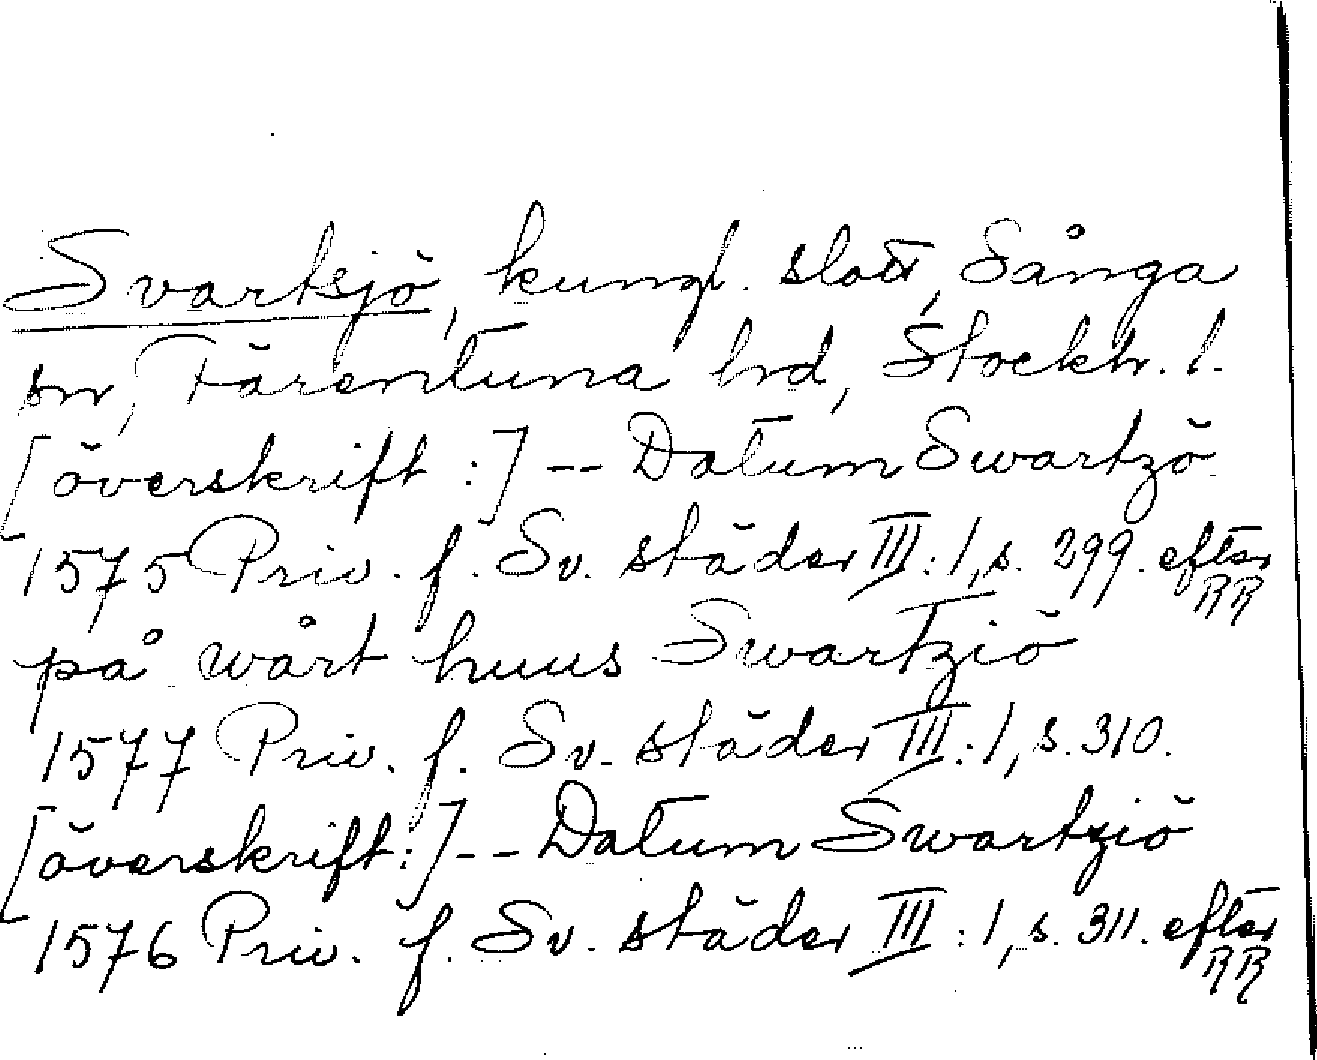 Svartsjö, kungl. slott, Sånga
sn, Färentuna hrd, Stockh. l.
[överskrift :] -- Datum Swartzö
1575 Priv. f. Sv. städer III: 1, s. 299. efter RR
på wårt huus Swartziö
1577 Priv. f. Sv. städer III: 1, s. 310.
[överskrift:] -- Datum Swartziö
1576 Priv. f. Sv. städer III: 1, s. 311. efter RR